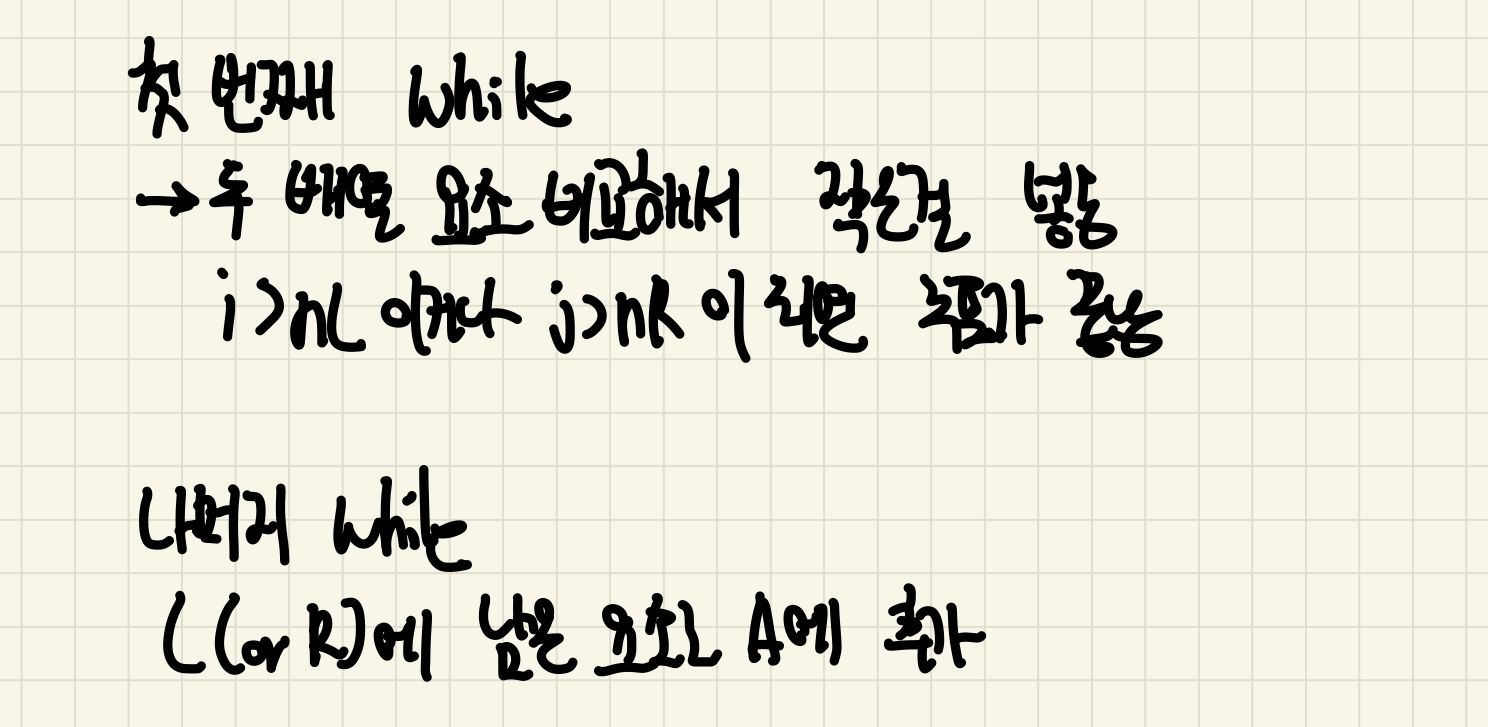 첫 번째 while
→ 두 배열 요소 비교해서 작은걸
i>nL 이거나 j>nR 이 되면
나머지 while
L(or R)에 남은 요소 A에 추가